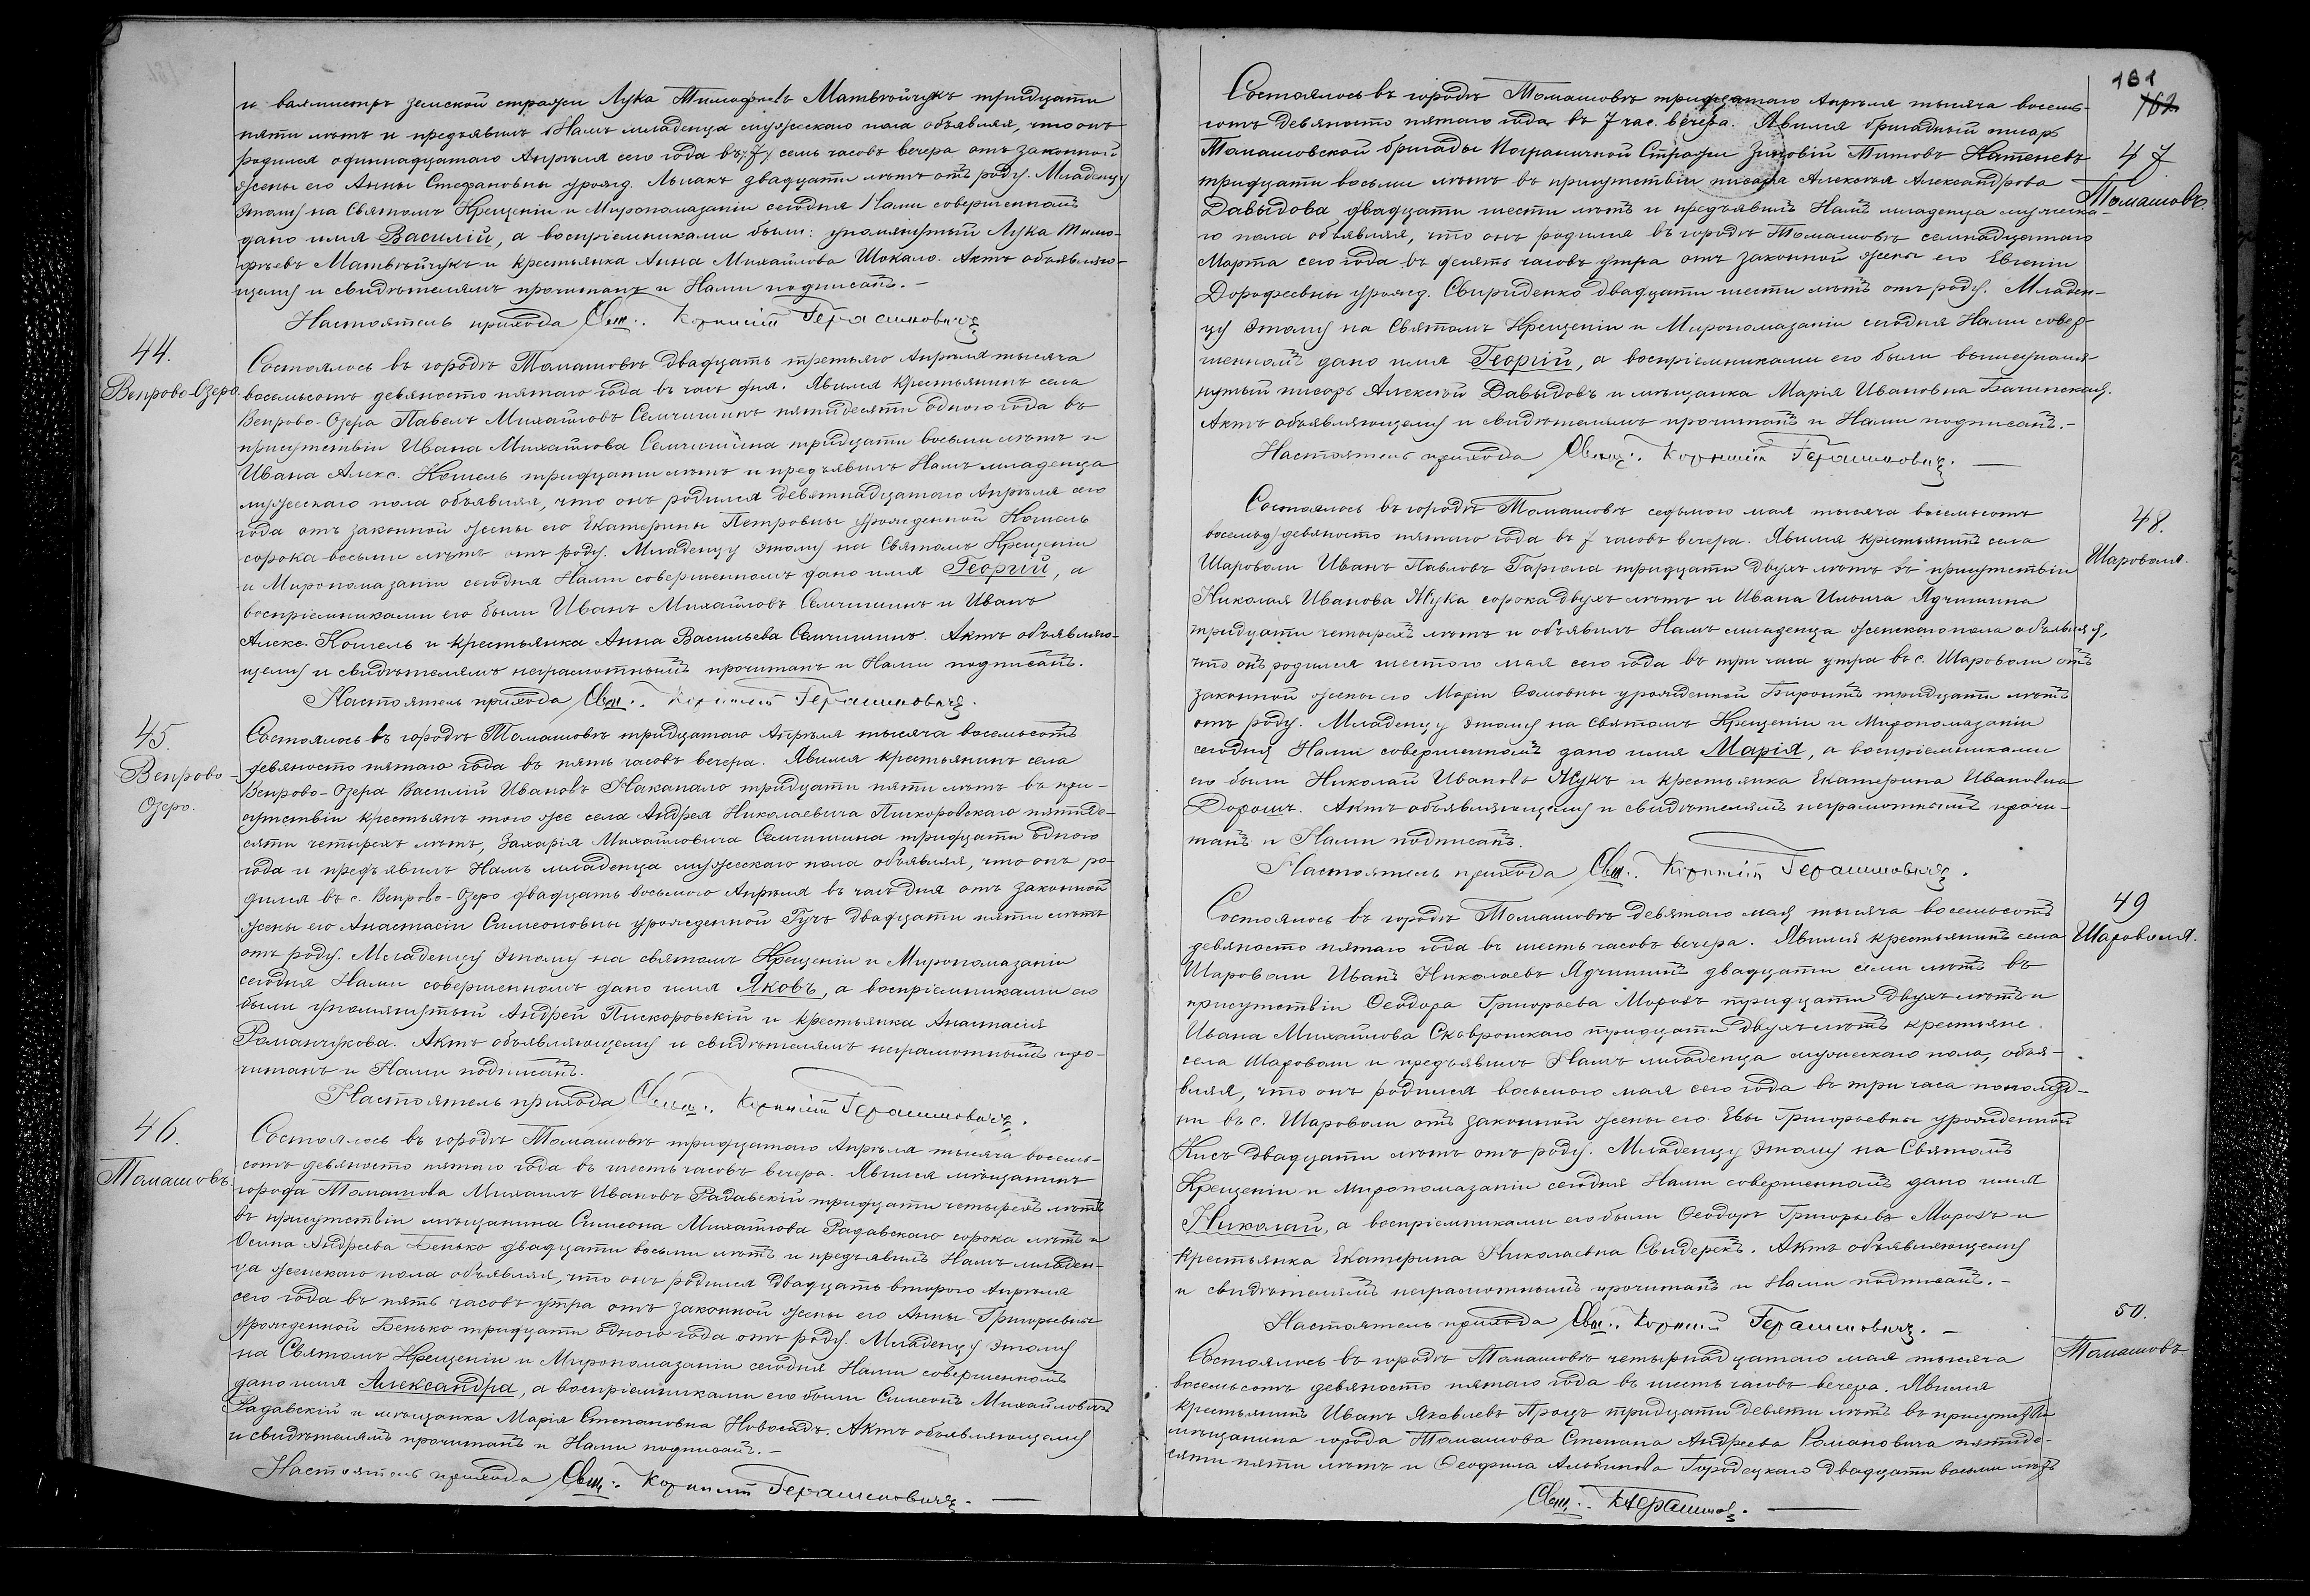 и вахмистръ земской стражи Лука Тимофеевъ Матвѣйчукъ тридцати
пяти лѣтъ и предъявилъ Намъ младенца мужескаго пола объявляя, что онъ
родился одиннадцатаго Апрѣля сего года въ /7/ семь часовъ вечера отъ законной
жены его Анны Стефановны урожд. двадцати лѣтъ отъ роду. Младенцу
этому на Святомъ Крещеніи и Миропомазаніи сегодня Нами совершенномъ
дано имя Василій, а воспріемниками были: упомянутый Лука Тимо-
фѣевъ Матвѣйчукъ и крестьянка Анна Михайлова Шокало. Актъ объявляю-
щему и свидѣтелямъ прочитанъ и Нами подписанъ.-
Настоятель прихода Свщ.: Корнилій Герасимовичъ
44.
Вепрово-Озеро.
Состоялось въ городѣ Томашовѣ двадцать третьяго Апрѣля тысяча
восемьсотъ девяносто пятаго года въ часъ дня. Явился крестьянинъ села
Вепрово-Озера Павелъ Михайловъ Семчишинъ пятидесяти одного года въ
присутствіи Ивана Михайлова Семчишина тридцати восьми лѣтъ и
Ивана Алекс. Кошель тридцати лѣтъ и предъявилъ Намъ младенца
мужескаго пола объявляя, что онъ родился девятнадцатаго Апрѣля сего
года отъ законной жены его Екатерины Петровны урожденной Кошель
сорока восьми лѣтъ отъ роду. Младенцу этому на Святомъ Крещеніи
и Миропомазаніи сегодня Нами совершенномъ дано имя Георгий, а
воспріемниками его были Иванъ Михайловъ Семчишинъ и Иванъ
Алекс. Кошель и крестьянка Анна Васильева Семчишинъ. Актъ объявляю-
щему и свидѣтелямъ неграмотнымъ прочитанъ и Нами подписанъ.
Настоятель прихода Свщ.: Корнилій Герасимовичъ.
45.
Вепрово-
Озеро.
Состоялось въ городѣ Томашовѣ тридцатаго Апрѣля тысяча восемьсотъ
девяносто пятаго года въ пять часовъ вечера. Явился крестьянинъ села
Вепрово-Озера Василій Ивановъ Накапало тридцати пяти лѣтъ въ при-
сутствіи крестьянъ того же села Андрея Николаевича Пискоровскаго пятиде-
сяти четырехъ лѣтъ, Захарія Михайловича Семчишина тридцати одного
года и предъявилъ Намъ младенца мужескаго пола объявляя, что онъ ро-
дился въ с. Вепрово-Озеро двадцать восьмого Апрѣля въ часъ дня отъ законной
жены его Анастасіи Симеоновны урожденной Гучъ двадцати пяти лѣтъ
отъ роду. Младенцу этому на святомъ Крещеніи и Миропомазаніи
сегодня Нами совершенномъ дано имя Яковъ, а воспріемниками его
были упомянутый Андрей Пискоровскій и крестьянка Анастасія
Романчукова. Актъ объявляющему и свидѣтелямъ неграмотнымъ про-
читанъ и Нами подписанъ.
Настоятель прихода Свщ.: Корнилій Герасимовичъ.
46.
Томашовъ.
Состоялось въ городѣ Томашовѣ тридцатаго Апрѣля тысяча восемь-
сотъ девяносто пятаго года въ шесть часовъ вечера. Явился мѣщанинъ
города Томашова Михаилъ Ивановъ Радавскій тридцати четырехъ лѣтъ
въ присутствіи мѣщанина Симеона Михайлова Радавскаго сорока лѣтъ и
Осипа Андреева Бенько двадцати восьми лѣтъ и предъявилъ Намъ младен-
ца женскаго пола объявляя, что онъ родился двадцать второго Апрѣля
сего года въ пять часовъ утра отъ законной жены его Анны Григорьевны
урожденной Бенько тридцати одного года отъ роду. Младенцу этому
на Святомъ Крещеніи и Миропомазаніи сегодня Нами совершенномъ
дано имя Александра, а воспріемниками его были Симеонъ Михайловичъ
Радавскій и мѣщанка Марія Степановна Новосадъ. Актъ объявляющему
и свидѣтелямъ прочитанъ и Нами подписанъ.-
Настоятель прихода Свщ.: Корнилій Герасимовичъ.
181
182
47
Томашовъ.
Состоялось въ городѣ Томашовѣ тридцатаго Апрѣля тысяча восемь-
сотъ девяносто пятаго года въ 7 час. вечера. Явился бригадный писарь
Томашовской бригады Пограничной Стражи Зиновій Титовъ Катеневъ
тридцати восьми лѣтъ въ присутствіи писаря Алексѣя Александрова
Давыдова двадцати шести лѣтъ и предъявилъ Намъ младенца мужеска-
го пола объявляя, что онъ родился въ городѣ Томашовѣ семнадцатаго
Марта сего года въ десять часовъ утра отъ законной жены его Евгеніи
Дорофеевны урожд. Свириденко двадцати шести лѣтъ отъ роду. Младен-
цу этому на Святомъ Крещеніи и Миропомазаніи сегодня Нами совер-
шенномъ дано имя Георгій, а воспріемниками его были вышеупомя-
нутый писарь Алексѣй Давыдовъ и мѣщанка Марія Ивановна Бачинская.
Актъ объявляющему и свидѣтелямъ прочитанъ и Нами подписанъ.-
Настоятель прихода Свщ.: Корнилій Герасимовичъ.
48.
Шароволя.
Состоялось въ городѣ Томашовѣ седьмого мая тысяча восемьсотъ
девяносто пятаго года въ 7 часовъ вечера. Явился крестьянинъ села
Шароволи Иванъ Павловъ Гаргола тридцати двухъ лѣтъ въ присутствіи
Николая Иванова Жука сорока двухъ лѣтъ и Ивана Ильича Ядчишина
тридцати четырехъ лѣтъ и объявилъ Намъ младенца женскаго пола объявляя,
что онъ родился шестого мая сего года въ три часа утра въ с. Шароволи отъ
законной жены его Маріи урожденной тридцати лѣтъ
отъ роду. Младенцу этому на Святомъ Крещеніи и Миропомазаніи
сегодня Нами совершенномъ дано имя Марія, а воспріемниками
его были Николай Ивановъ Жукъ и крестьянка Екатерина Ивановна
Дорошъ. Актъ объявляющему и свидѣтелямъ неграмотнымъ прочи-
танъ и Нами подписанъ.
Настоятель прихода Свщ.: Корнилій Герасимовичъ.
49
Шароволя.
Состоялось въ городѣ Томашовѣ девятаго мая тысяча восемьсотъ
девяносто пятаго года въ шесть часовъ вечера. Явился крестьянинъ села
Шароволи Иванъ Николаевъ Ядчишинъ двадцати семи лѣтъ въ
присутствіи Ѳеодора Григорьева Морозъ тридцати двухъ лѣтъ и
Ивана Михайлова Сковронскаго тридцати двухъ лѣтъ крестьяне
села Шароволи и предъявилъ Намъ младенца мужескаго пола, объя-
вляя, что онъ родился восьмого мая сего года въ три часа пополуд-
ни въ с. Шароволи отъ законной жены его Евы Григорьевны урожденной
Кисъ двадцати лѣтъ отъ роду. Младенцу этому на Святомъ
Крещеніи и миропомазаніи сегодня Нами совершенномъ дано имя
Николай, а воспріемниками его были Ѳеодоръ Григорьевъ Морозъ и
крестьянка Екатерина Николаевна Свидерекъ. Актъ объявляющему
и свидѣтелямъ неграмотнымъ прочитанъ и Нами подписанъ.-
Настоятель прихода Свщ.: Корнилій Герасимовичъ.-
50.
Томашовъ
Состоялось въ городѣ Томашовѣ четырнадцатаго мая тысяча
восемьсотъ девяносто пятаго года въ шесть часовъ вечера. Явился
крестьянинъ Иванъ Яковлевъ Процъ тридцати девяти лѣтъ въ присутствіи
мѣщанина города Томашова Степана Андреева Романовича пятиде-
сяти пяти лѣтъ и Ѳеофила Альбинова Городецкаго двадцати восьми лѣтъ
Свщ.: КГерасимов.